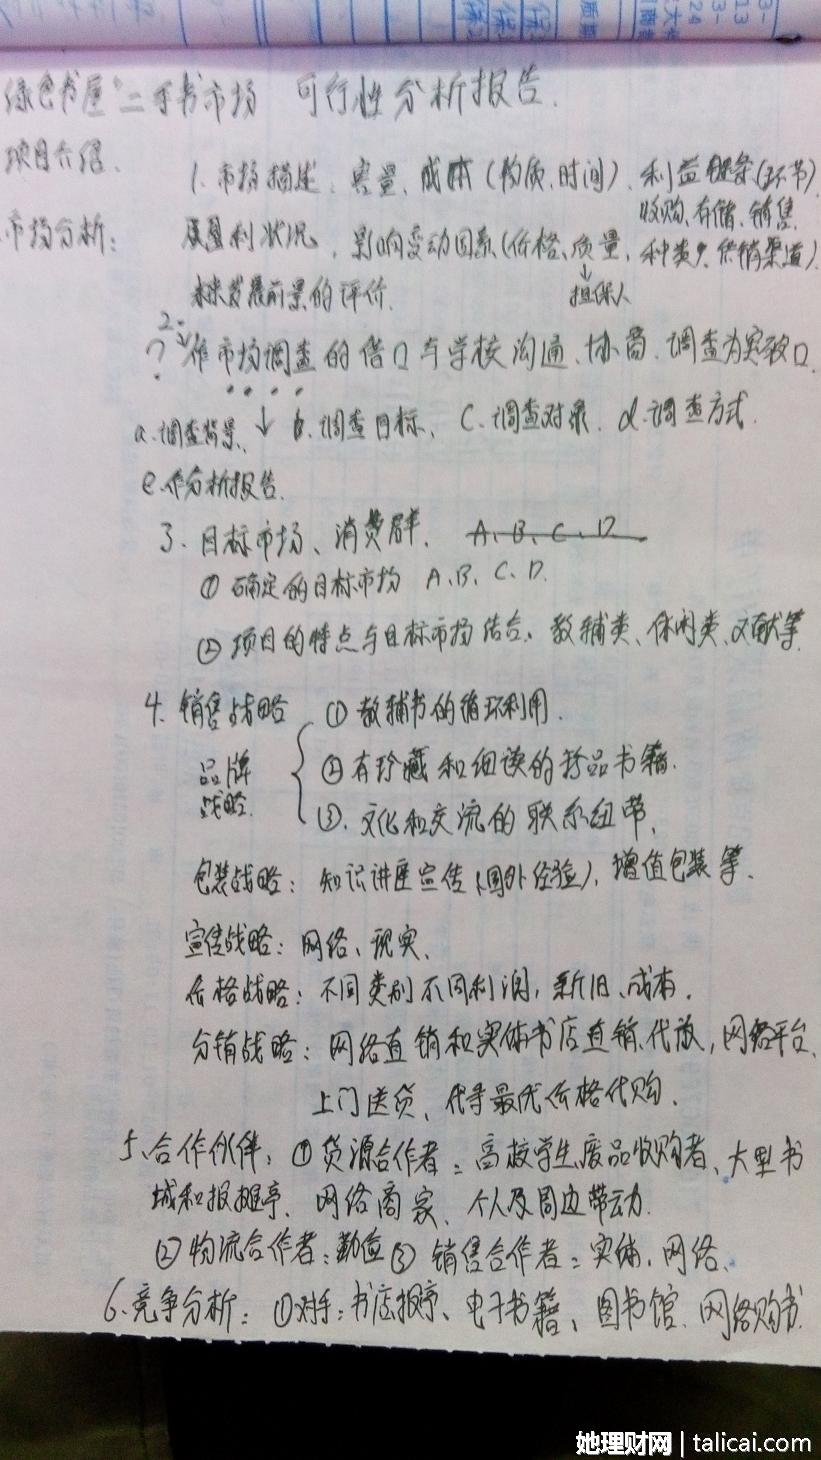 绿色书屋"二手书市场 可行性分析报告.
项目介绍.
1. 市场描述: 容量、成本(物质、时间)、利益链条(环节)
收购、存储、销售
市场分析: 及盈利状况, 影响变动因素(价格、质量, 种类, 供销渠道)
未来发展前景的评价. 担保人
2.
? 作市场调查的借口与学校沟通、协商. 调查为突破口.
a. 调查背景、 b. 调查目标、 C. 调查对象. d. 调查方式.
e. 作分析报告.
3. 目标市场、消费群. A、B、C、D
① 确定的目标市场 A、B、C、D.
② 项目的特点与目标市场结合. 教辅类、休闲类、文献等.
4. 销售战略 ① 教辅书的循环利用.
品牌 ② 有珍藏和细读的珍品书籍.
战略 ③. 文化和交流的联系纽带.
包装战略: 知识讲座宣传(国外经验), 增值包装等.
宣传战略: 网络、现实、
价格战略: 不同类别不同利润, 新旧、成本.
分销战略: 网络直销和实体书店直销、代放, 网络平台.
上门送货、代寻最优价格代购.
5、合作伙伴: ① 货源合作者: 高校学生、废品收购者、大型书
城和报摊亭、网络商家、个人及周边带动.
② 物流合作者: 勤俭 ③ 销售合作者: 实体、网络、
6、竞争分析: ① 对手: 书店报亭、电子书籍、图书馆、网络购书.
3-
13
3-
24
她理财网 | talicai.com